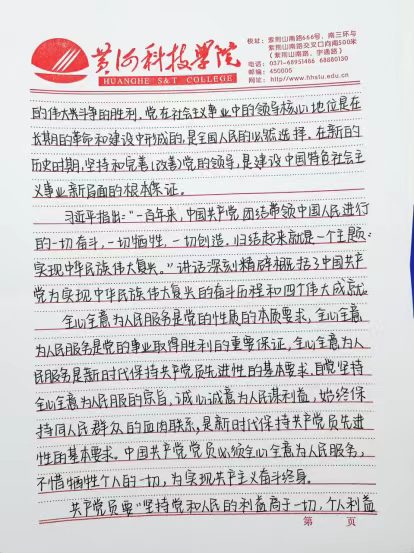 黄河科技学院
HUANGHE S&T COLLEGE
校址：紫荆山南路666号，南三环与
紫荆山南路交叉口向南500米
（紫荆山南路，字通路）
电话：0371-68951486 68880130
邮编：450005
网址：http://www.hhstu.edu.cn
的伟大斗争的胜利，党在社会主义事业中的领导核心地位是在
长期的革命和建设中形成的，是全国人民的必然选择，在新的
历史时期，坚持和完善(改善)党的领导，是建设中国特色社会主
义事业新局面的根本保证。
习近平指出："一百年来，中国共产党团结带领中国人民进行
的一切奋斗，一切牺牲，一切创造，归结起来就是一个主题：
实现中华民族伟大复兴。"讲话深刻精辟概括了中国共产
党为实现中华民族伟大复兴的奋斗历程和四个伟大成就。
全心全意为人民服务是党的性质的本质要求，全心全意
为人民服务是党的事业取得胜利的重要保证，全心全意为人
民服务是新时代保持共产党员先进性的基本要求，自觉坚持
全心全意为人民服的宗旨，诚心诚意为人民谋利益，始终保
持同人民群众的血肉联系，是新时代保持共产党员先进
性的基本要求。中国共产党党员必须全心全意为人民服务，
不惜牺牲个人的一切，为实现共产主义奋斗终身。
共产党员要"坚持党和人民的利益高于一切，个人利益
第 页